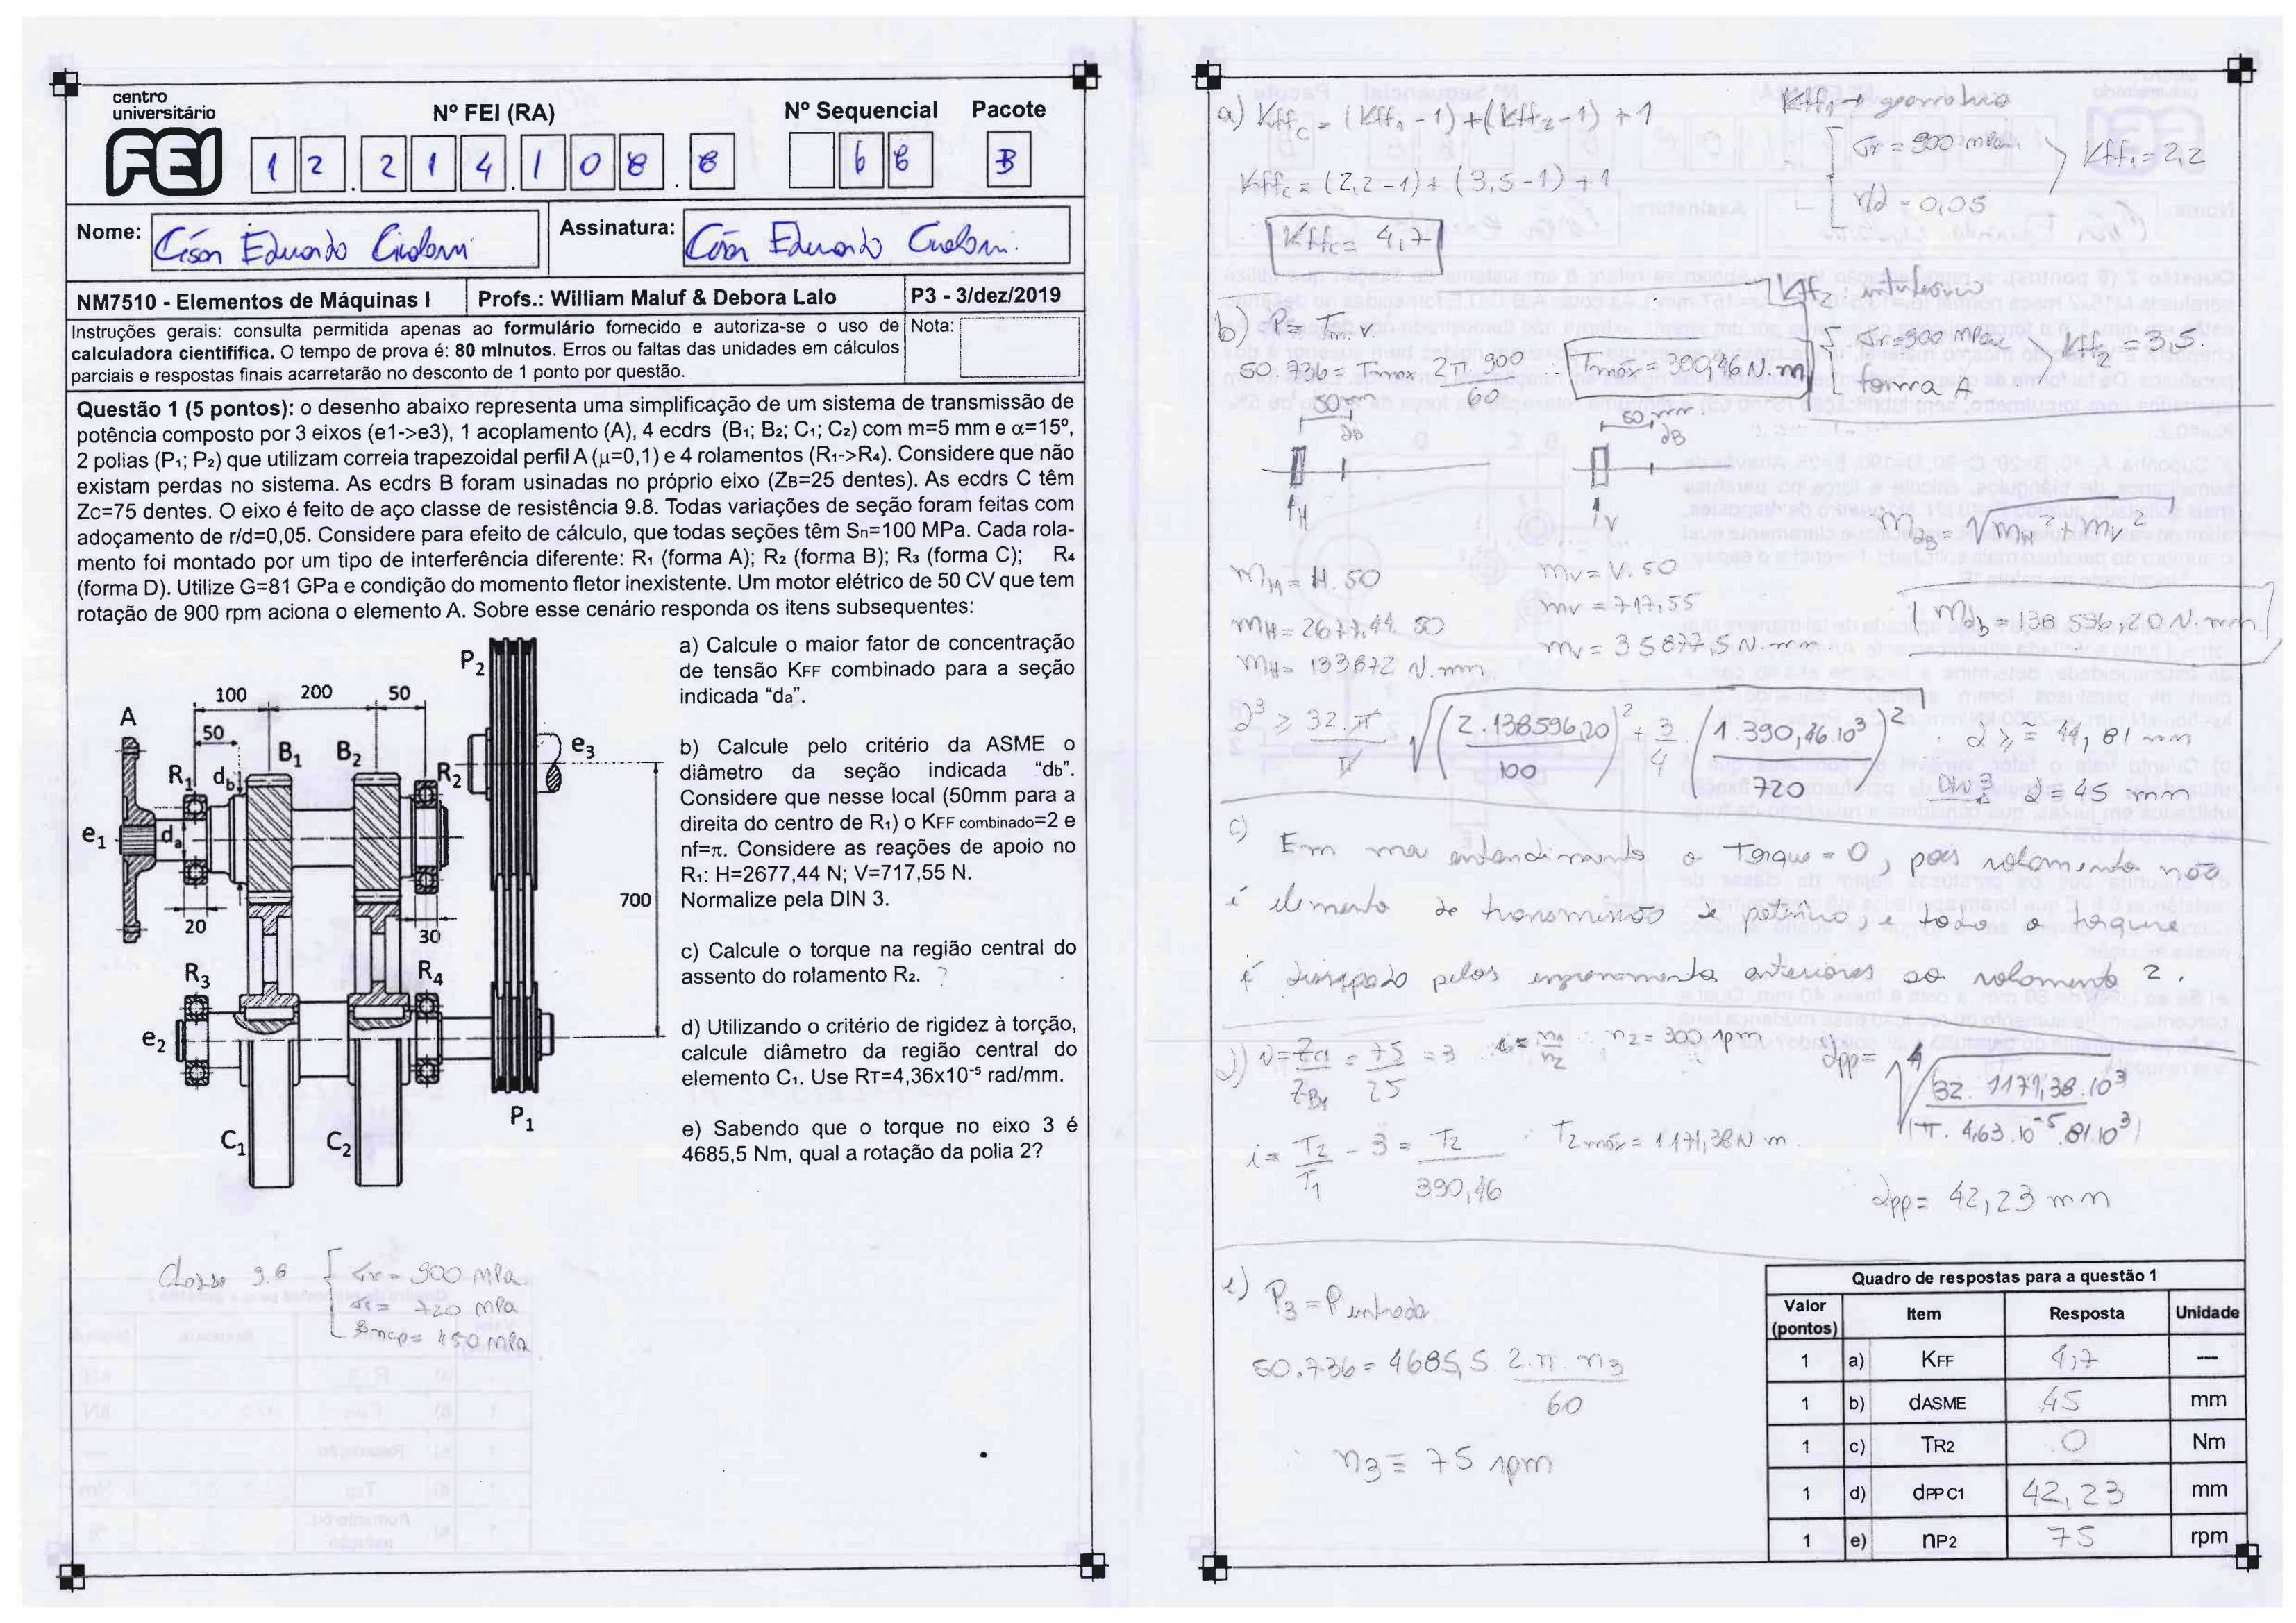 centro
universitário
FEI
Nº FEI (RA)
Nº Sequencial
Pacote
1 2 . 2 1 4 . 1 0 8 . 8
6 8
B
Nome:
César Eduardo
Assinatura:
César Eduardo
NM7510 - Elementos de Máquinas I
Profs.: William Maluf & Debora Lalo
P3 - 3/dez/2019
Instruções gerais: consulta permitida apenas ao formulário fornecido e autoriza-se o uso de
calculadora cientifífica. O tempo de prova é: 80 minutos. Erros ou faltas das unidades em cálculos
parciais e respostas finais acarretarão no desconto de 1 ponto por questão.
Nota:
Questão 1 (5 pontos): o desenho abaixo representa uma simplificação de um sistema de transmissão de
potência composto por 3 eixos (e1->e3), 1 acoplamento (A), 4 ecdrs (B₁; B₂; C₁; C₂) com m=5 mm e α=15º,
2 polias (P₁; P₂) que utilizam correia trapezoidal perfil A (μ=0,1) e 4 rolamentos (R₁->R₄). Considere que não
existam perdas no sistema. As ecdrs B foram usinadas no próprio eixo (ZB=25 dentes). As ecdrs C têm
Zc=75 dentes. O eixo é feito de aço classe de resistência 9.8. Todas variações de seção foram feitas com
adoçamento de r/d=0,05. Considere para efeito de cálculo, que todas seções têm Sn=100 MPa. Cada rola-
mento foi montado por um tipo de interferência diferente: R₁ (forma A); R₂ (forma B); R₃ (forma C); R₄
(forma D). Utilize G=81 GPa e condição do momento fletor inexistente. Um motor elétrico de 50 CV que tem
rotação de 900 rpm aciona o elemento A. Sobre esse cenário responda os itens subsequentes:
a) Calcule o maior fator de concentração
de tensão KFF combinado para a seção
indicada “da”.
b) Calcule pelo critério da ASME o
diâmetro da seção indicada “db”.
Considere que nesse local (50mm para a
direita do centro de R₁) o KFF combinado=2 e
nf=π. Considere as reações de apoio no
R₁: H=2677,44 N; V=717,55 N.
Normalize pela DIN 3.
c) Calcule o torque na região central do
assento do rolamento R₂. ?
d) Utilizando o critério de rigidez à torção,
calcule diâmetro da região central do
elemento C₁. Use RT=4,36x10⁻⁵ rad/mm.
e) Sabendo que o torque no eixo 3 é
4685,5 Nm, qual a rotação da polia 2?
P₂
100 200 50
A
50
B₁ B₂
R₁ db
R₂
e₃
e₁
da
700
20
30
R₃
R₄
e₂
P₁
C₁
C₂
Classe 9.8
σr = 900 MPa
σe = 720 MPa
= 450 MPa
a) Kffc = (Kff1 - 1) + (Kff2 - 1) + 1
Kffc = (2,2 - 1) + (3,5 - 1) + 1
Kffc = 4,7
Kff1 → geometria
σr = 900 MPa
r/d = 0,05
Kff1 = 2,2
Kff2 interferência
σr = 900 MPa
forma A
Kff2 = 3,5.
b) P = Tm. v.
50.736 = Tmax 2π. 900 / 60 ∴ Tmáx = 390,46 N.m
50mm dB
50mm dB
H
V
MdB = √(MH² + MV²)
MH = H.50
MH = 2677,44.50
MH = 133872 N.mm
MV = V.50
MV = 717,55
MV = 35877,5 N.mm
MdB = 138 596,20 N.mm
d³ ≥ 32.π / π √((2.138596,20 / 100)² + 3/4 (1.390,46.10³ / 720)²) ∴ d ≥ = 44,81 mm
DIN 3 d = 45 mm
c) Em meu entendimento o Torque = 0, pois rolamento não
é elemento de transmissão de potência, e todo o torque
é dissipado pelos engrenamentos anteriores ao rolamento 2.
d) i = ZC1 / ZB1 = 75 / 25 = 3 i = n1 / n2 ∴ n2 = 300 rpm
i = T2 / T1 - 3 = T2 / 390,46 ∴ T2máx = 1171,38 N m.
dpp = ⁴√(32. 1171,38.10³ / π. 4,63.10⁻⁵.81.10³)
dpp = 42,23 mm
e) P3 = P entrada
50.736 = 4685,5. 2.π. n3 / 60
∴ n3 = 75 rpm
Quadro de respostas para a questão 1
Valor (pontos) Item Resposta Unidade
1 a) KFF 4,7 ---
1 b) dASME 45 mm
1 c) TR2 0 Nm
1 d) dPP C1 42,23 mm
1 e) nP2 75 rpm